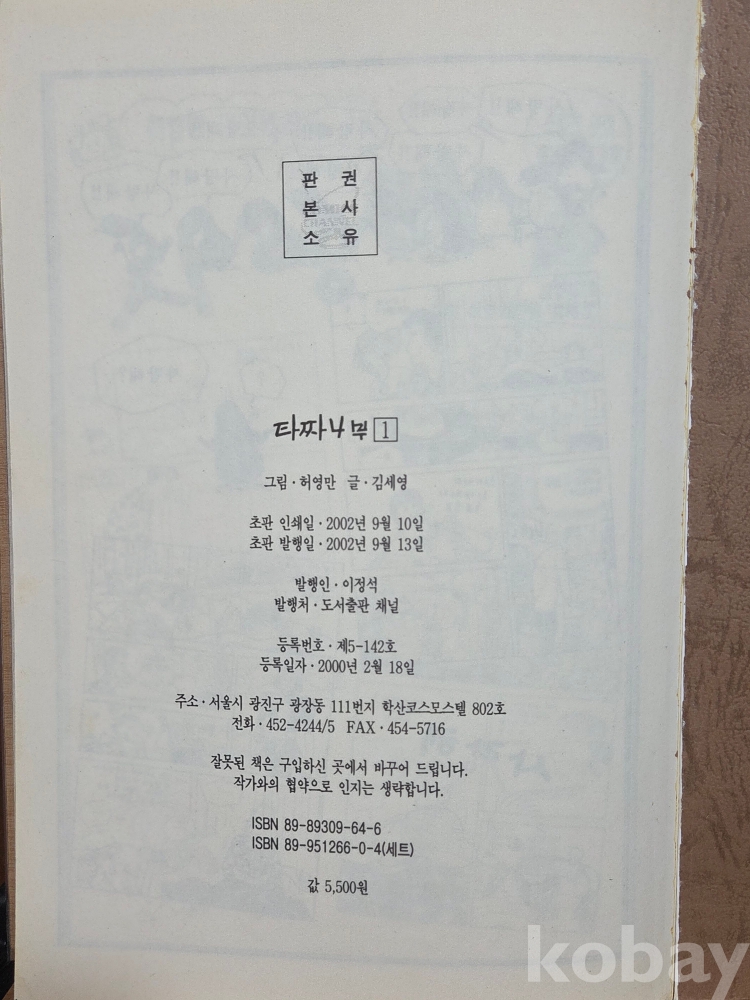 판 권
본 사
소 유
타짜 4부 1
그림·허영만 글·김세영
초판 인쇄일·2002년 9월 10일
초판 발행일·2002년 9월 13일
발행인·이정석
발행처·도서출판 채널
등록번호·제5-142호
등록일자·2000년 2월 18일
주소·서울시 광진구 광장동 111번지 학산코스모스텔 802호
전화·452-4244/5 FAX·454-5716
잘못된 책은 구입하신 곳에서 바꾸어 드립니다.
작가와의 협약으로 인지는 생략합니다.
ISBN 89-89309-64-6
ISBN 89-951266-0-4(세트)
값 5,500원
kobay